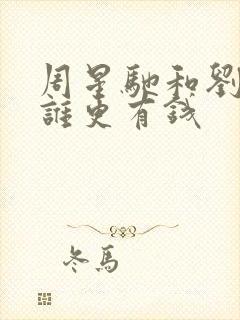 周星馳和劉
誰更有錢
冬馬